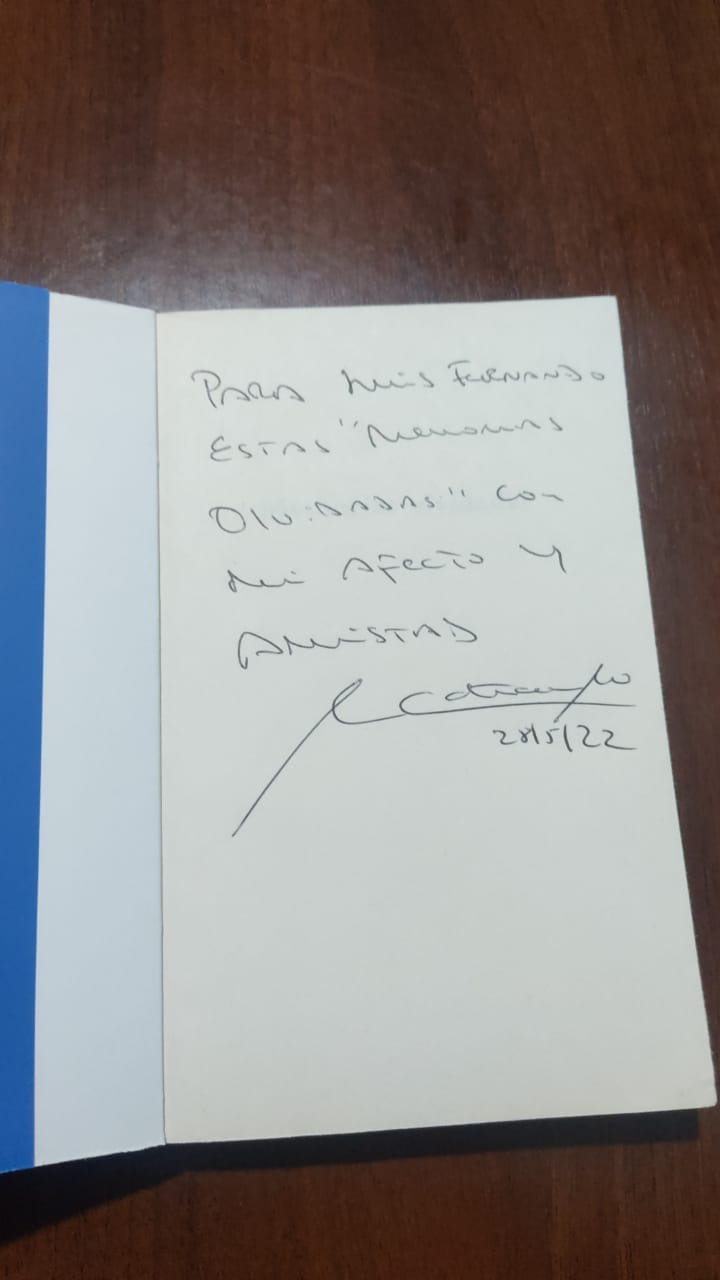 PARA LUIS FERNANDO
ESTAS "MEMORIAS
OLVIDADAS" CON
MI AFECTO Y
AMISTAD
28/5/22